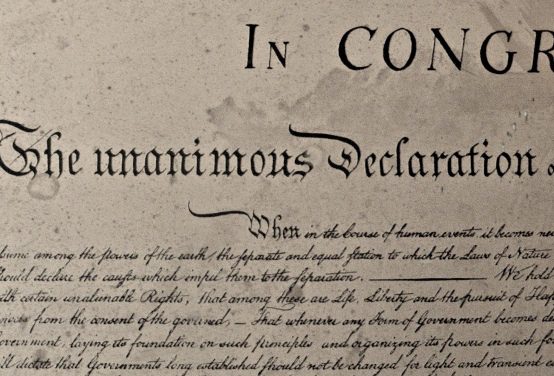 IN CONGR
The unanimous Declaration o
When in the Course of human events, it becomes ne
sume among the powers of the earth, the separate and equal station to which the Laws of Nature
should declare the causes which impel them to the separation. ——— We hold
ith certain unalienable Rights, that among these are Life, Liberty and the pursuit of Hap
owers from the consent of the governed, — That whenever any Form of Government becomes de
vernment, laying its foundation on such principles and organizing its powers in such fo
ill dictate that Governments long established should not be changed for light and transient c